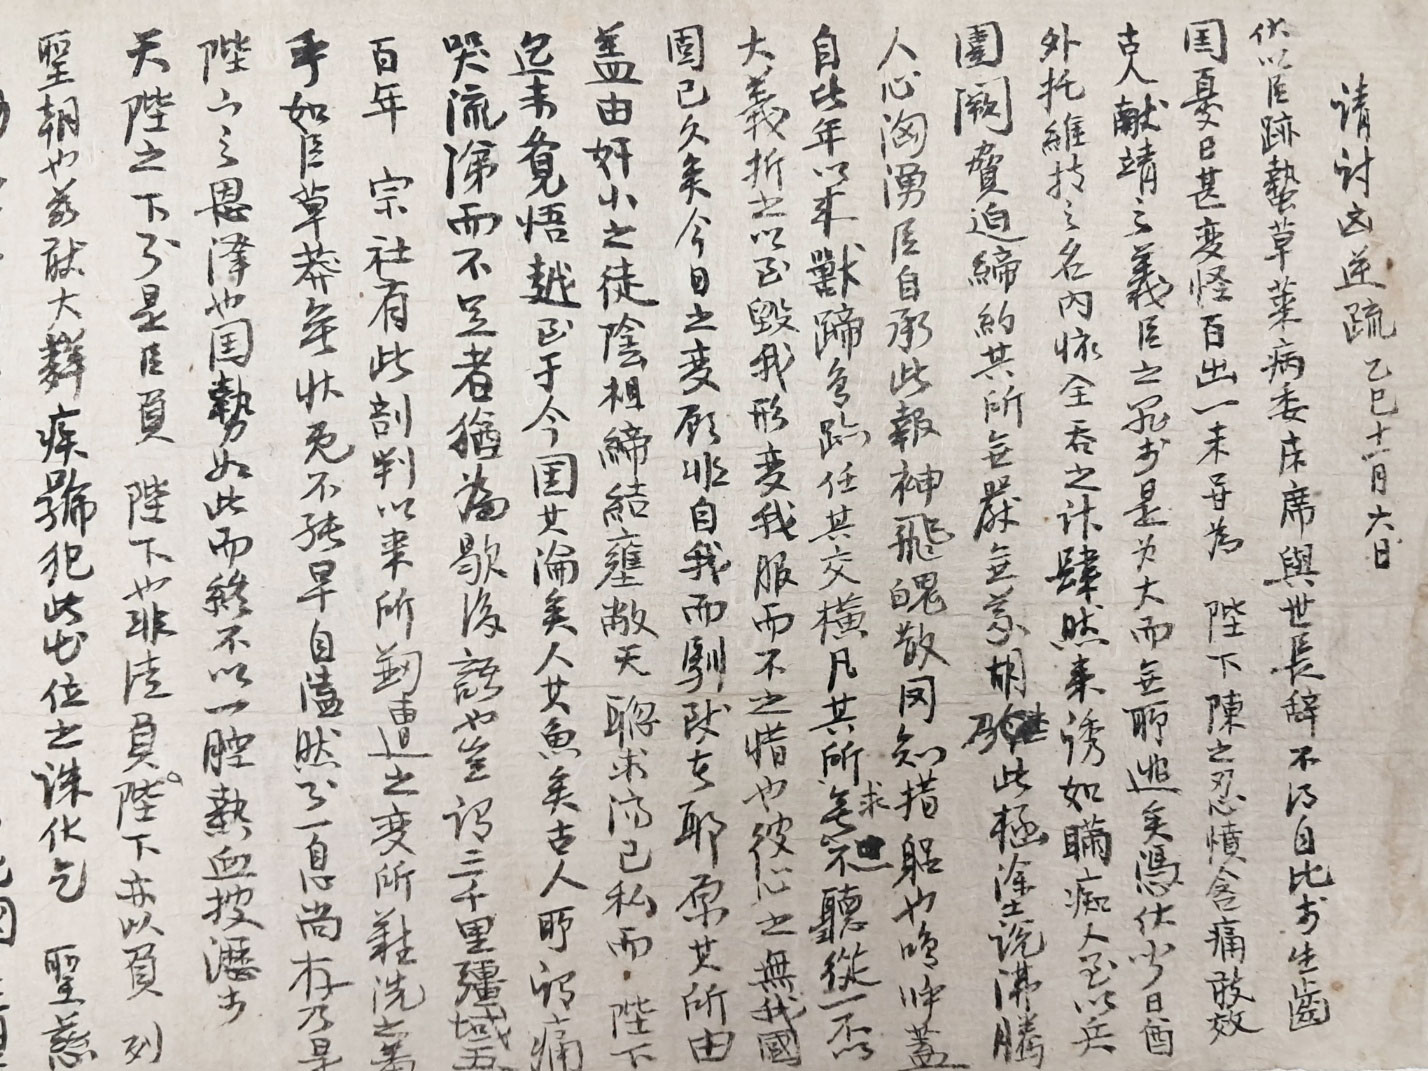 請討凶逆疏 乙巳十一月六日
伏以臣跡蟄草萊病委床席與世長辭不得自比於生齒
国憂已甚变怪百出一未甞為 陛下陳之忍憤含痛敢效
古人獻靖之義臣之罪於是为大而無所逃矣憑伏尐日酋
外托維持之名内懷全吞之计肆然来诱如瞞痴人至以兵
圍闕贺迫締約其所無嚴無蒙胡 此極塗説沸騰
人心洶湧臣自承此報神飛魄散罔知措躬也嗚呼蓋
自比年以来獸蹄鳥跡任其交横凡其所求無不聽從一不以
大義折之以至毁我形变我服而不之惜也彼心之無我國
固已久矣今日之变顧非自我而馴致者耶原其所由
盖由奸小之徒陰相締結壅蔽天聰求済己私而 陛下
迄未覚悟越至于今国其淪矣人其魚矣古人所谓痛
哭流涕而不足者猶為歇後語也豈谓三千里疆域五
百年 宗社有此剖判以来所刱遭之变所難洗之羞
乎如臣草莽無状死不能早自溘然尔一息尚存乃是
陛下之恩澤也国勢如此而終不以一腔熱血披瀝于
天陛之下尔是臣負 陛下也非徒負陛下亦以負 列
聖朝也兹敢大聲疾號犯此出位之誅伏乞 聖慈